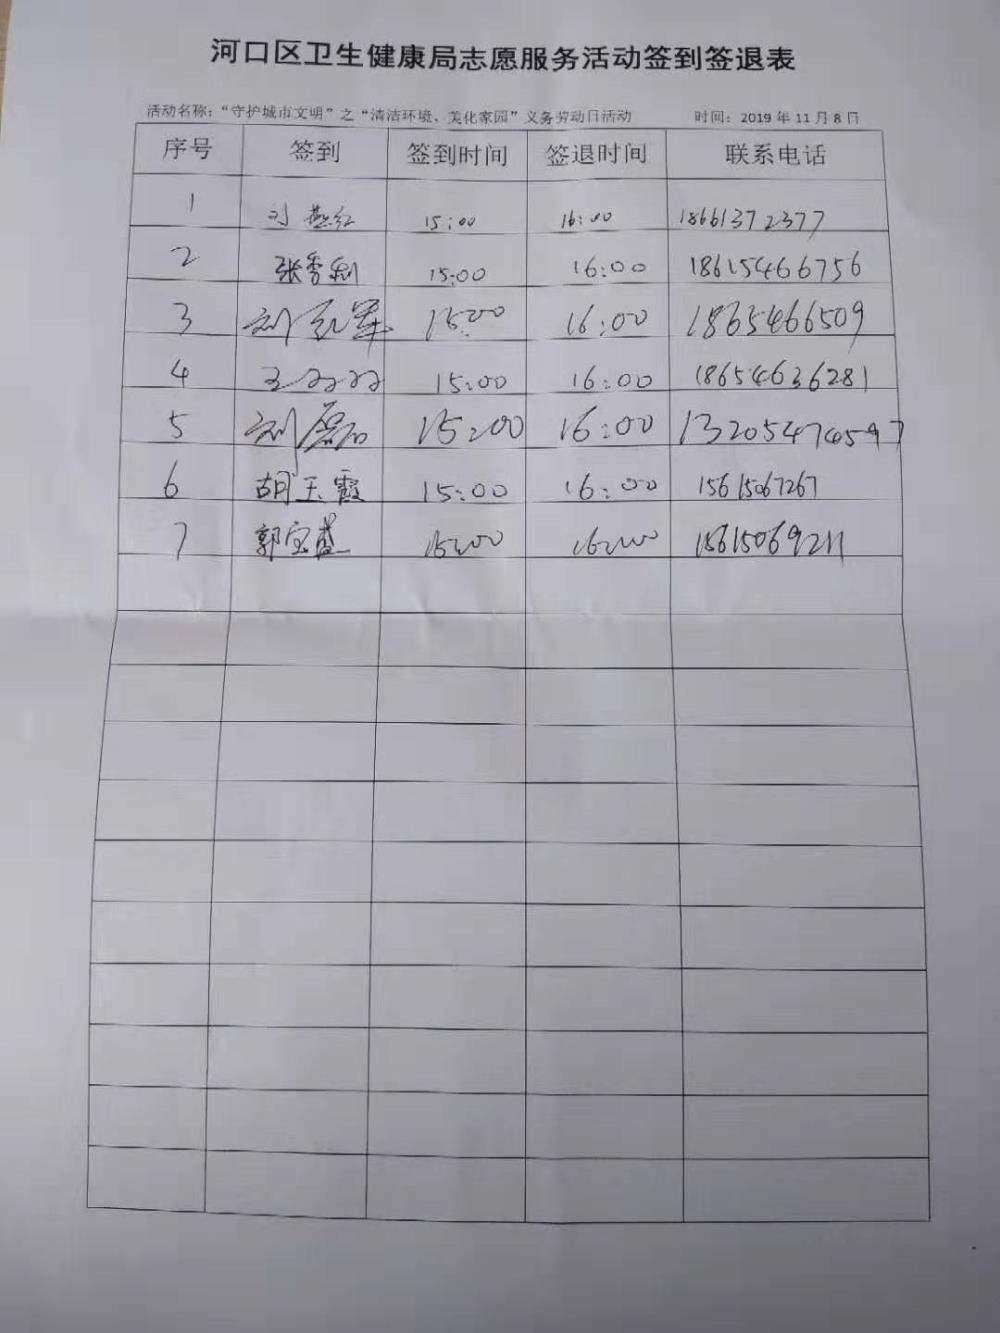 河口区卫生健康局志愿服务活动签到签退表
活动名称：“守护城市文明”之“清洁环境、美化家园”义务劳动日活动 时间：2019年11月8日
序号 签到 签到时间 签退时间 联系电话
1 刘燕红 15:00 16:00 18661372377
2 张秀利 15:00 16:00 18615466756
3 刘 军 15:00 16:00 1865466509
4 王 15:00 16:00 18654636281
5 刘磊 15:00 16:00 13205474597
6 胡玉霞 15:00 16:00 15615067267
7 郭宝盛 15:00 16:00 15615069211